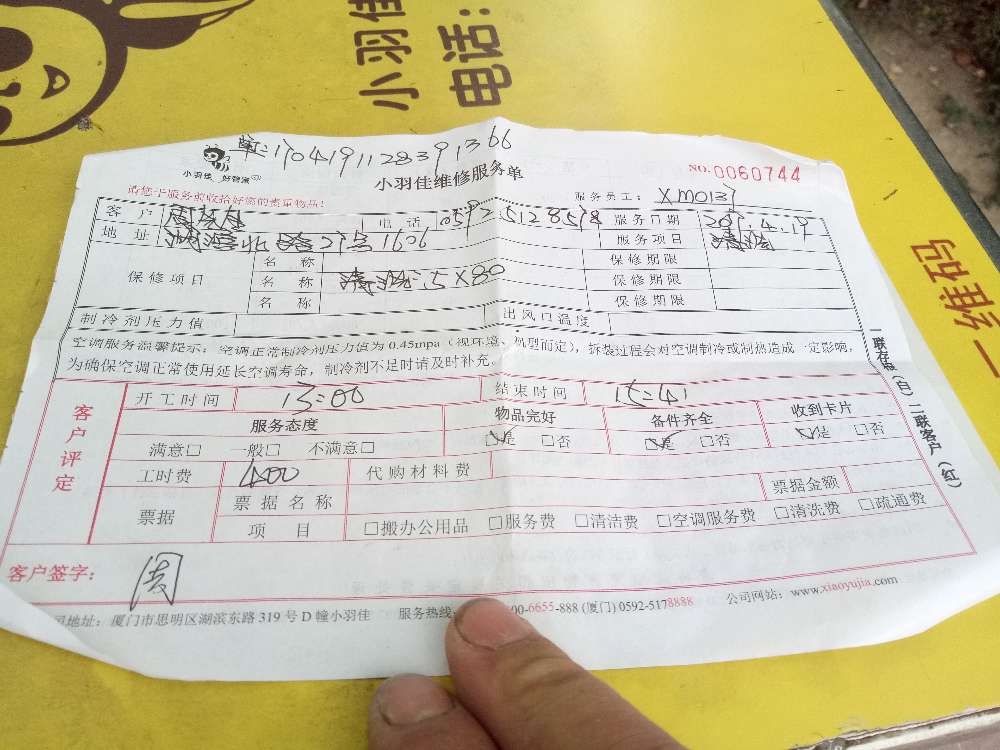 小羽佳
电话:
二维码
单:1704191128391366
小羽佳 好管家
小羽佳维修服务单
NO.0060744
请您于服务前收拾好您的贵重物品!
服务员工: XM0137
客户 电话 0592.5128578 服务日期 2017.4.19
地址 2号 1606 服务项目 清洗
名称 保修期限
保修项目 名称 清洗:5X80 保修期限
名称 保修期限
制冷剂压力值 出风口温度
空调服务温馨提示:空调正常制冷剂压力值为0.45mpa(视环境、机型而定),拆装过程会对空调制冷或制热造成一定影响,
为确保空调正常使用延长空调寿命,制冷剂不足时请及时补充。
一联存根(白)二联客户(红)
客户评定
开工时间 13:00 结束时间 15:41
服务态度 物品完好 备件齐全 收到卡片
满意□ 一般□ 不满意□ ☑是 □否 ☑是 □否 ☑是 □否
工时费 400 代购材料费
票据 票据名称 票据金额
项目 □搬办公用品 □服务费 □清洁费 □空调服务费 □清洗费 □疏通费
客户签字: 周
地址:厦门市思明区湖滨东路319号D幢小羽佳 服务热线 00-6655-888 (厦门) 0592-5178888 公司网站:www.xiaoyujia.com